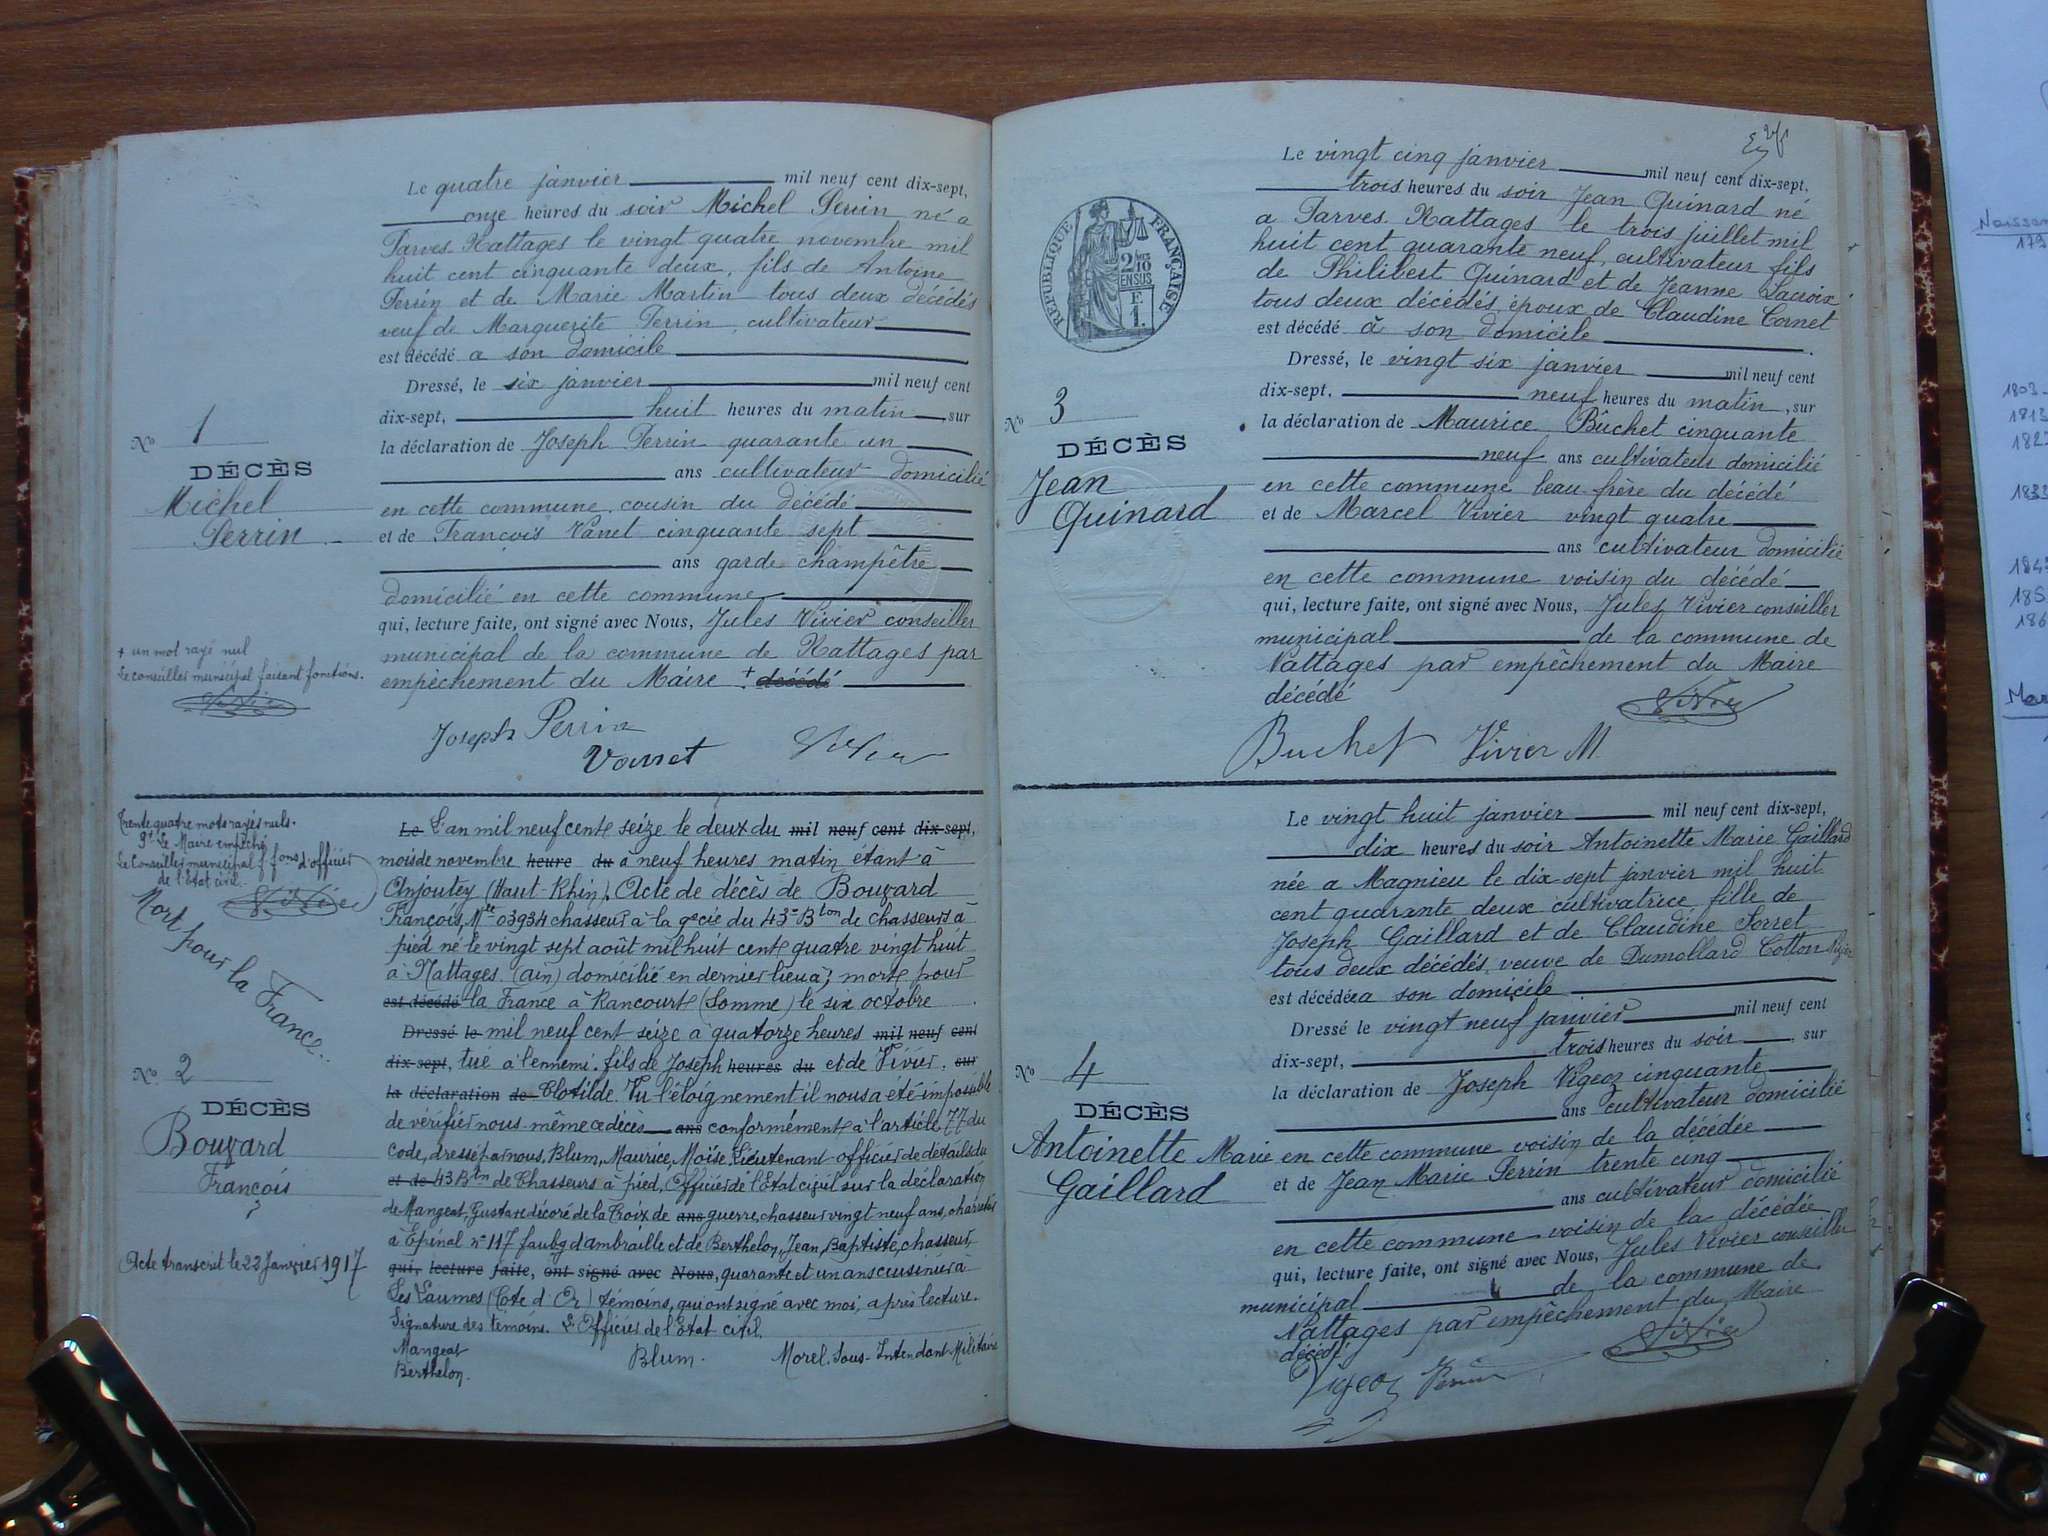 Le quatre janvier mil neuf cent dix-sept,
onze heures du soir Michel Perrin né a
Parves-Nattages le vingt quatre novembre mil
huit cent cinquante deux, fils de Antoine
Perrin et de Marie Martin tous deux décédés
veuf de Marguerite Perrin, cultivateur
est décédé a son domicile
Dressé, le six janvier mil neuf cent
dix-sept, huit heures du matin, sur
No 1
DÉCÈS
Michel
Perrin
la déclaration de Joseph Perrin quarante un
ans cultivateur domicilié
en cette commune, cousin du décédé
et de François Vanet cinquante sept
ans garde champêtre
domicilié en cette commune
qui, lecture faite, ont signé avec Nous, Jules Vivier conseiller
municipal de la commune de Nattages par
empêchement du Maire + décédé
+ un mot rayé nul
Le conseiller municipal faisant fonctions.
Vivier
Joseph Perrin
Vannet Vivier
Trente quatre mots rayés nuls.
Le Maire empêché
Le Conseiller municipal f fons d'officier
de l'Etat civil.
Vivier
Mort pour la France.
No 2
DÉCÈS
Bouvard
François
Acte transcrit le 22 Janvier 1917
Le L'an mil neuf cent seize le deux du mil neuf cent dix-sept,
mois de novembre heure du à neuf heures matin étant à
Anjoutey (Haut-Rhin). Acte de décès de Bouvard
François, Mle 03934 chasseur à la 9e cie du 43e Bton de chasseurs à
pied né le vingt sept août mil huit cent quatre vingt huit
à Nattages (ain) domicilié en dernier lieu à, mort pour
est décédé la France à Rancourt (Somme) le six octobre
Dressé le mil neuf cent seize à quatorze heures mil neuf cent
dix-sept, tué à l'ennemi. fils de Joseph heures du et de Vivier. sur
la déclaration de Clotilde. Vu l'éloignement il nous a été impossible
de vérifier nous-même ce décès ans conformément à l'article 77 du
code, dressé par nous, Blum, Maurice, Moïse, Lieutenant officier de détails du
et de 43 Btn de Chasseurs à pied, Officier de l'Etat civil sur la déclaration
de Mangeat, Gustave décoré de la Croix de ans guerre, chasseur vingt neuf ans,
à Epinal n° 117 faubg d'ambraille et de Berthelon, Jean, Baptiste, chasseur,
qui, lecture faite, ont signé avec Nous, quarante et un ans cuisinier à
Les Laumes (Côte d'Or) témoins, qui ont signé avec moi, après lecture.
Signature des témoins. L'Officier de l'Etat civil.
Mangeat Blum. Morel. Sous-Intendant Militaire
Berthelon.
REPUBLIQUE FRANÇAISE
2 10
EN SUS
F.
1.
Le vingt cinq janvier mil neuf cent dix-sept,
trois heures du soir Jean Quinard né
a Parves-Nattages le trois juillet mil
huit cent quarante neuf, cultivateur fils
de Philibert Quinard et de Jeanne Lacroix
tous deux décédés, époux de Claudine Cornet
est décédé à son domicile
Dressé, le vingt six janvier mil neuf cent
dix-sept, neuf heures du matin, sur
No 3
DÉCÈS
Jean
Quinard
la déclaration de Maurice Bûchet cinquante
neuf ans cultivateur domicilié
en cette commune beau-frère du décédé
et de Marcel Vivier vingt quatre
ans cultivateur domicilié
en cette commune voisin du décédé
qui, lecture faite, ont signé avec Nous, Jules Vivier conseiller
municipal de la commune de
Nattages par empêchement du Maire
décédé Vivier
Buchet Vivier M
Le vingt huit janvier mil neuf cent dix-sept,
dix heures du soir Antoinette Marie Gaillard
née a Magnieu le dix sept janvier mil huit
cent quarante deux cultivatrice fille de
Joseph Gaillard et de Claudine Sorret
tous deux décédés, veuve de Dumollard Cotton
est décédée a son domicile
Dressé le vingt neuf janvier mil neuf cent
dix-sept, trois heures du soir, sur
No 4
DÉCÈS
Antoinette Marie
Gaillard
la déclaration de Joseph Vigeoz cinquante
ans cultivateur domicilié
en cette commune voisin de la décédée
et de Jean Marie Perrin trente cinq
ans cultivateur domicilié
en cette commune voisin de la décédée
qui, lecture faite, ont signé avec Nous, Jules Vivier conseiller
municipal de la commune de
Nattages par empêchement du Maire
décédé Vivier
Vigeoz Perrin
1803
1813